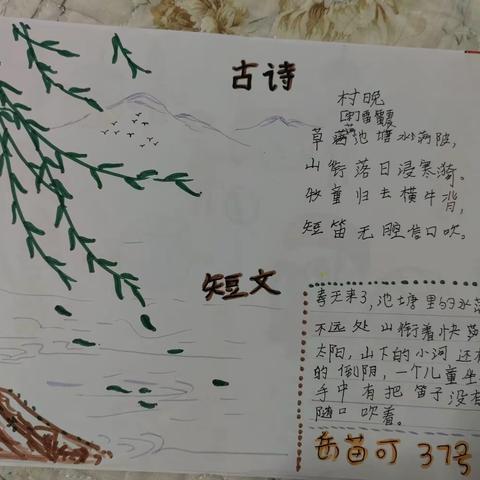 古诗
村晚
草满池塘水满陂，
山衔落日浸寒漪。
牧童归去横牛背，
短笛无腔信口吹。
短文
春天来了，池塘里的水
不远处山衔着快
太阳，山下的小河还
的倒阴，一个儿童坐
手中有把笛子没有
随口吹着。
岳苗可 37号